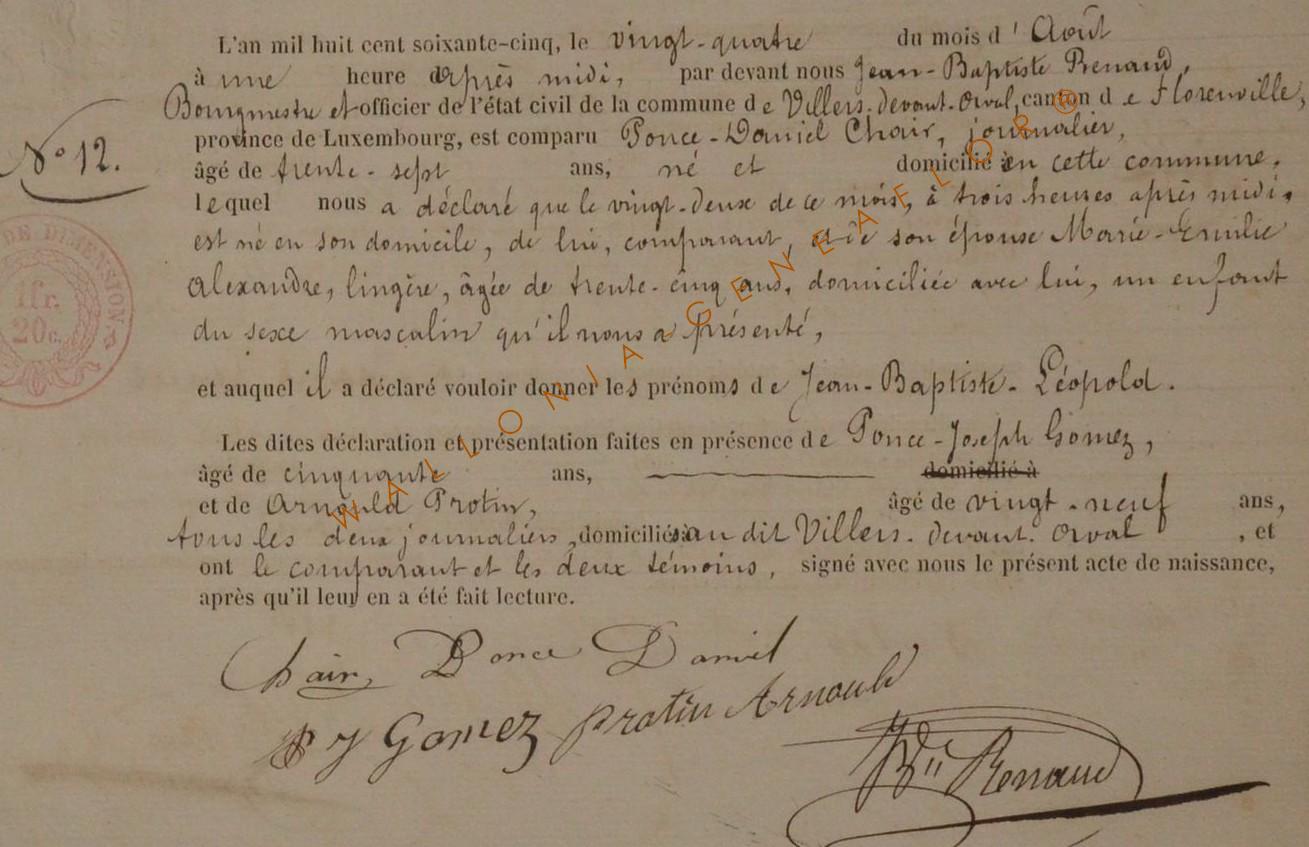 L'an mil huit cent soixante-cinq, le vingt-quatre du mois d'Août
à une heure après midi, par devant nous Jean-Baptiste Renaud,
Bourgmestre et officier de l'état civil de la commune de Villers-devant-Orval, canton de Florenville,
province de Luxembourg, est comparu Ponce-Daniel Chair, journalier,
N° 12.
âgé de trente-sept ans, né et domicilié en cette commune,
lequel nous a déclaré que le vingt-deux de ce mois, à trois heures après midi,
est né en son domicile, de lui, comparant, et de son épouse Marie-Emilie
Alexandre, lingère, âgée de trente-cinq ans, domiciliée avec lui, un enfant
DE DIMENSION
1fr.
20c.
du sexe masculin qu'il nous a présenté,
et auquel il a déclaré vouloir donner les prénoms de Jean-Baptiste-Léopold.
Les dites déclaration et présentation faites en présence de Ponce-Joseph Gomez,
âgé de cinquante ans, domicilié à
et de Arnould Protin, âgé de vingt-neuf ans,
tous les deux journaliers, domiciliés au dit Villers-devant-Orval, et
ont le comparant et les deux témoins, signé avec nous le présent acte de naissance,
après qu'il leur en a été fait lecture.
Chair Ponce Daniel
P J Gomez Protin Arnould
Renaud
WALLONIA GENEAFLOR®